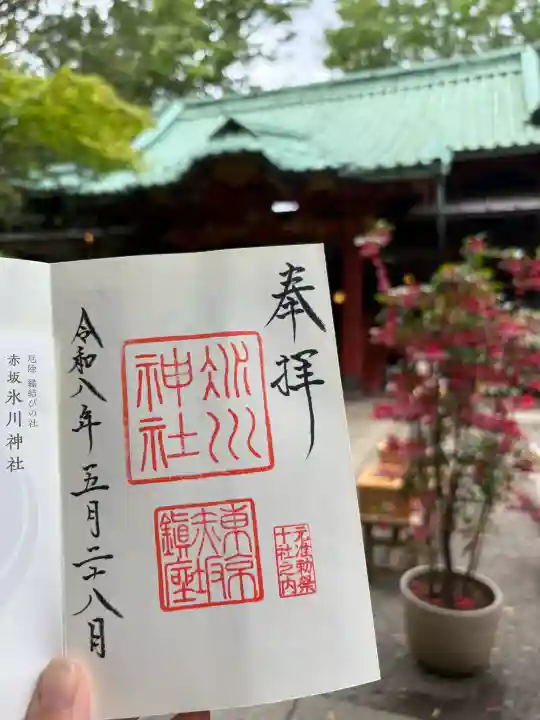 奉拝
氷川
神社
東京
赤坂
鎮座
元准勅祭
十社之内
令和八年五月二十八日
厄除 縁結びの社
赤坂氷川神社